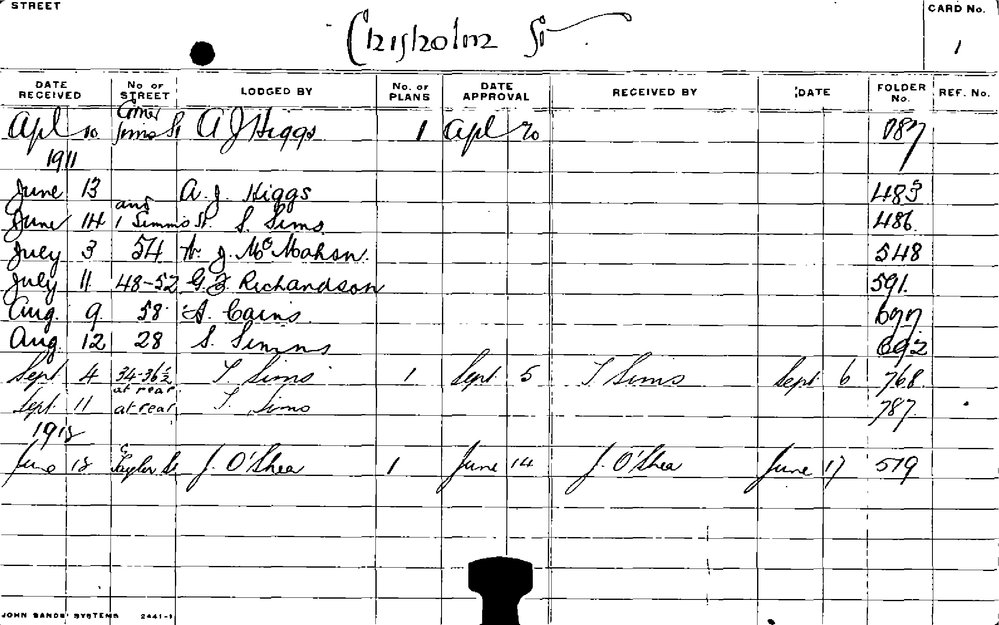 STREET
Chisholm St
CARD No.
1
DATE RECEIVED No OF STREET LODGED BY No. OF PLANS DATE APPROVAL RECEIVED BY DATE FOLDER No. REF. No.
Corner
Apl 10 Sims St A J Higgs 1 Apl 20 087
1911
June 13 A. J. Higgs 483
and
June 14 1 Simms St. S. Sims. 486.
July 3 54 J. McMahon. 548
July 11 48-52 G. Richardson 591.
Aug. 9 58 A. Cains 677
Aug. 12 28 S. Simms 692
Sept 4 34-36½ T Sims 1 Sept 5 T Sims Sept 6 768
at rear
Sept 11 at rear T. Sims 787.
June Taylor St J. O'Shea 1 June 14 J. O'Shea June 17 519
JOHN SANDS' SYSTEMS 2441-1